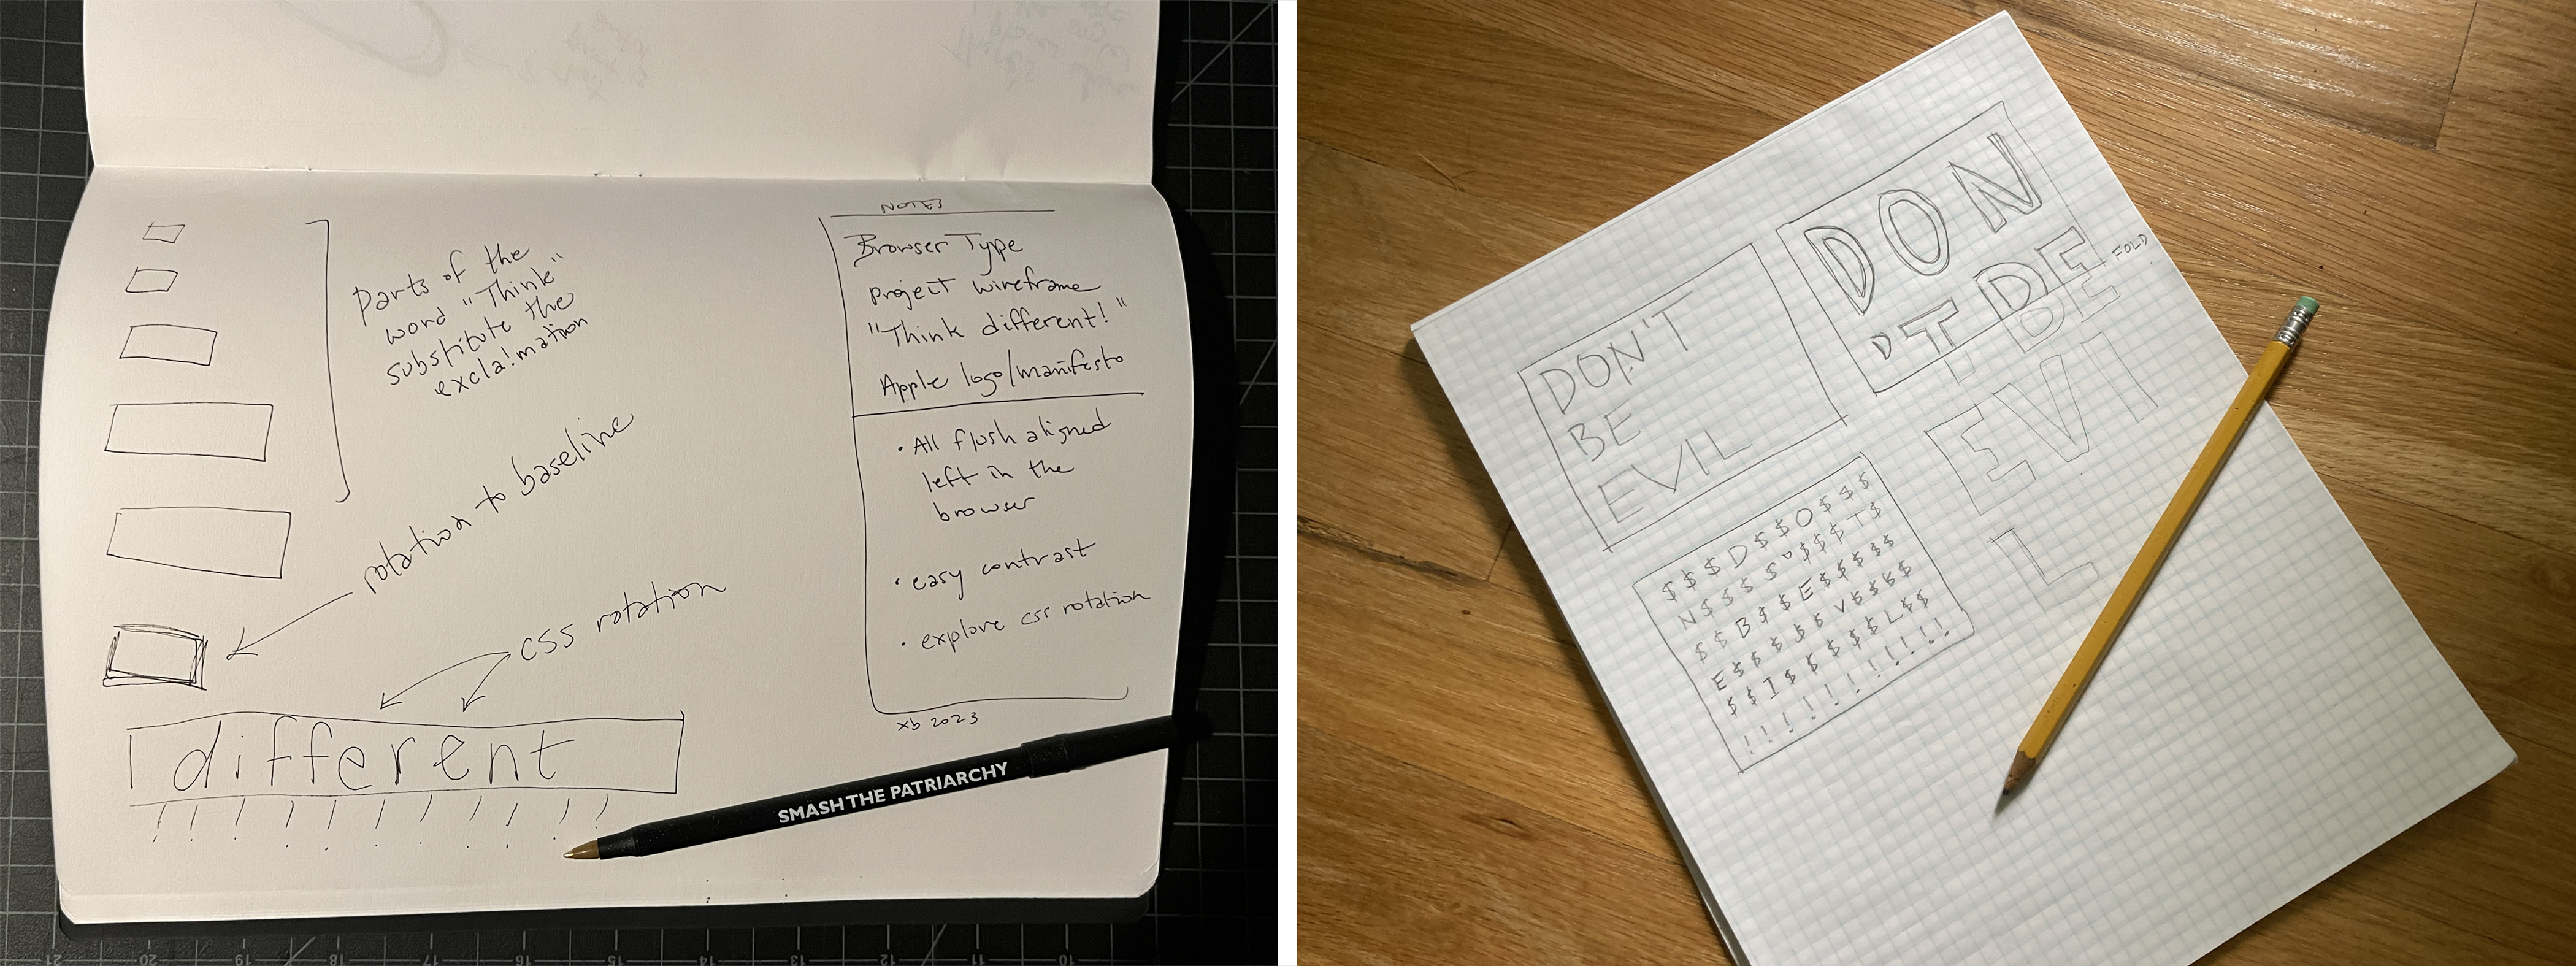 parts of the
word "Think"
substitute the
excla!mation
rotation to baseline
CSS rotation
different
! ! ! ! ! ! ! ! ! ! !
NOTES
Browser Type
project wireframe
"Think different!"
Apple logo/manifesto
• All flush aligned
left in the
browser
• easy contrast
• explore css rotation
xb 2023
SMASH THE PATRIARCHY
21 20 19 18 17 16 15 14 13 12 11 10
DON'T
BE
EVIL
DON
'T BE
FOLD
T BE
EVI
L
$ $ $ D $ $ O $ $ $
N $ $ $ $ ' $ $ $ T $
$ $ B $ $ E $ $ $ $ $
E $ $ $ $ $ V $ $ $ $
$ $ I $ $ $ $ $ L $ $
! ! ! ! ! ! ! ! ! ! !